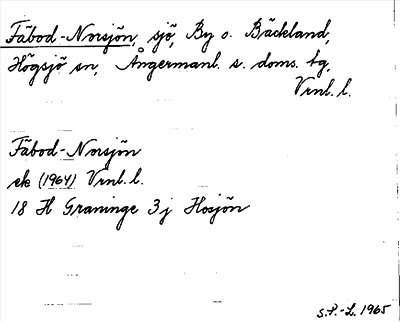 Fäbod-Norsjön, sjö, By o. Bäckland,
Högsjö sn, Ångermanl. s. doms. tg,
Vrnl. l.
Fäbod-Norsjön
ek (1964) Vrnl. l.
18 H Graninge 3j Hosjön
S.P.-L. 1965